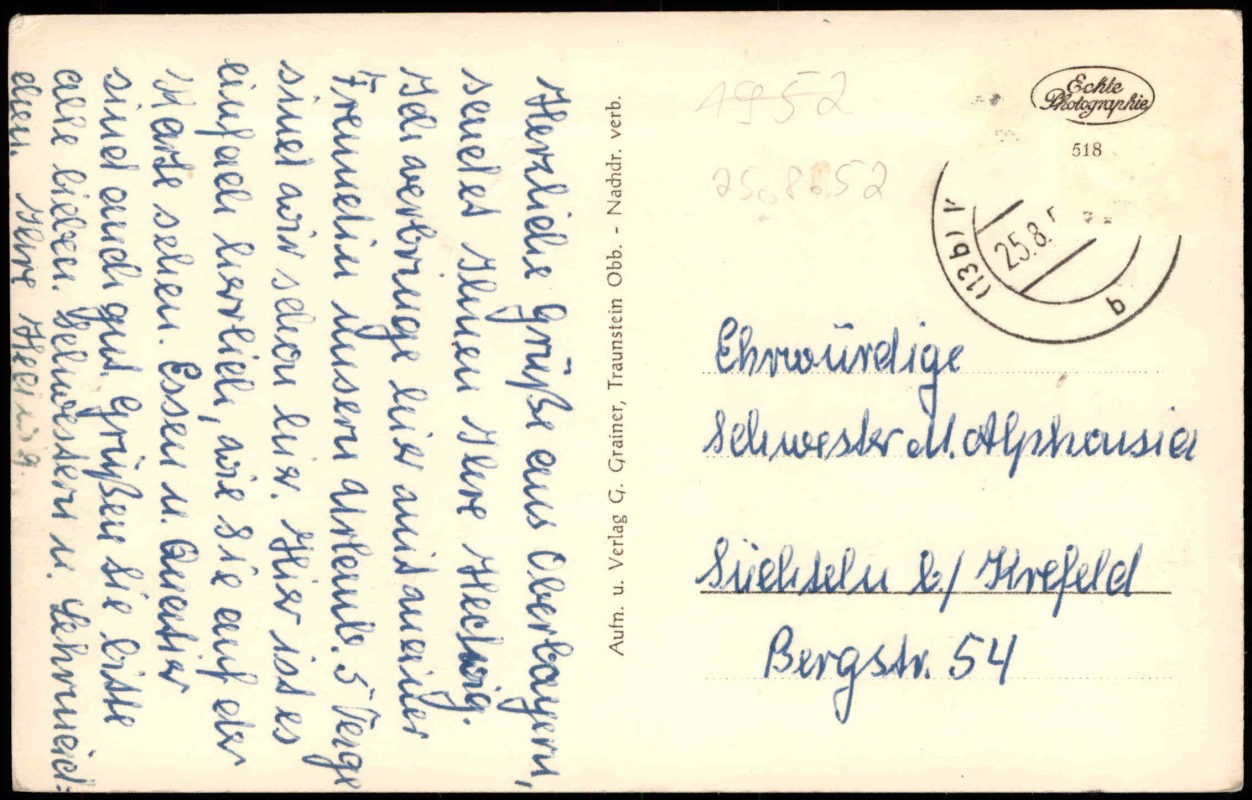 Herzliche Grüße aus Oberbayern,
sendet Ihnen Ihre Hedwig.
Ich verbringe hier mit meiner
Freundin unsern Urlaub. 5 Tage
sind wir schon hier. Hier ist es
einfach herrlich, wie Sie auf der
Karte sehen. Essen u. Quartier
sind auch gut. Grüßen Sie bitte
alle lieben Schwestern u. Lehrmäd-
chen. Ihre Hedwig.
Aufn. u. Verlag G. Grainer, Traunstein Obb. - Nachdr. verb.
1952
25.8.52
Echte
Photographie
518
(13b)
25.8.
Ehrwürdige
Schwester M. Alphonsia
Süchteln b/ Krefeld
Bergstr. 54